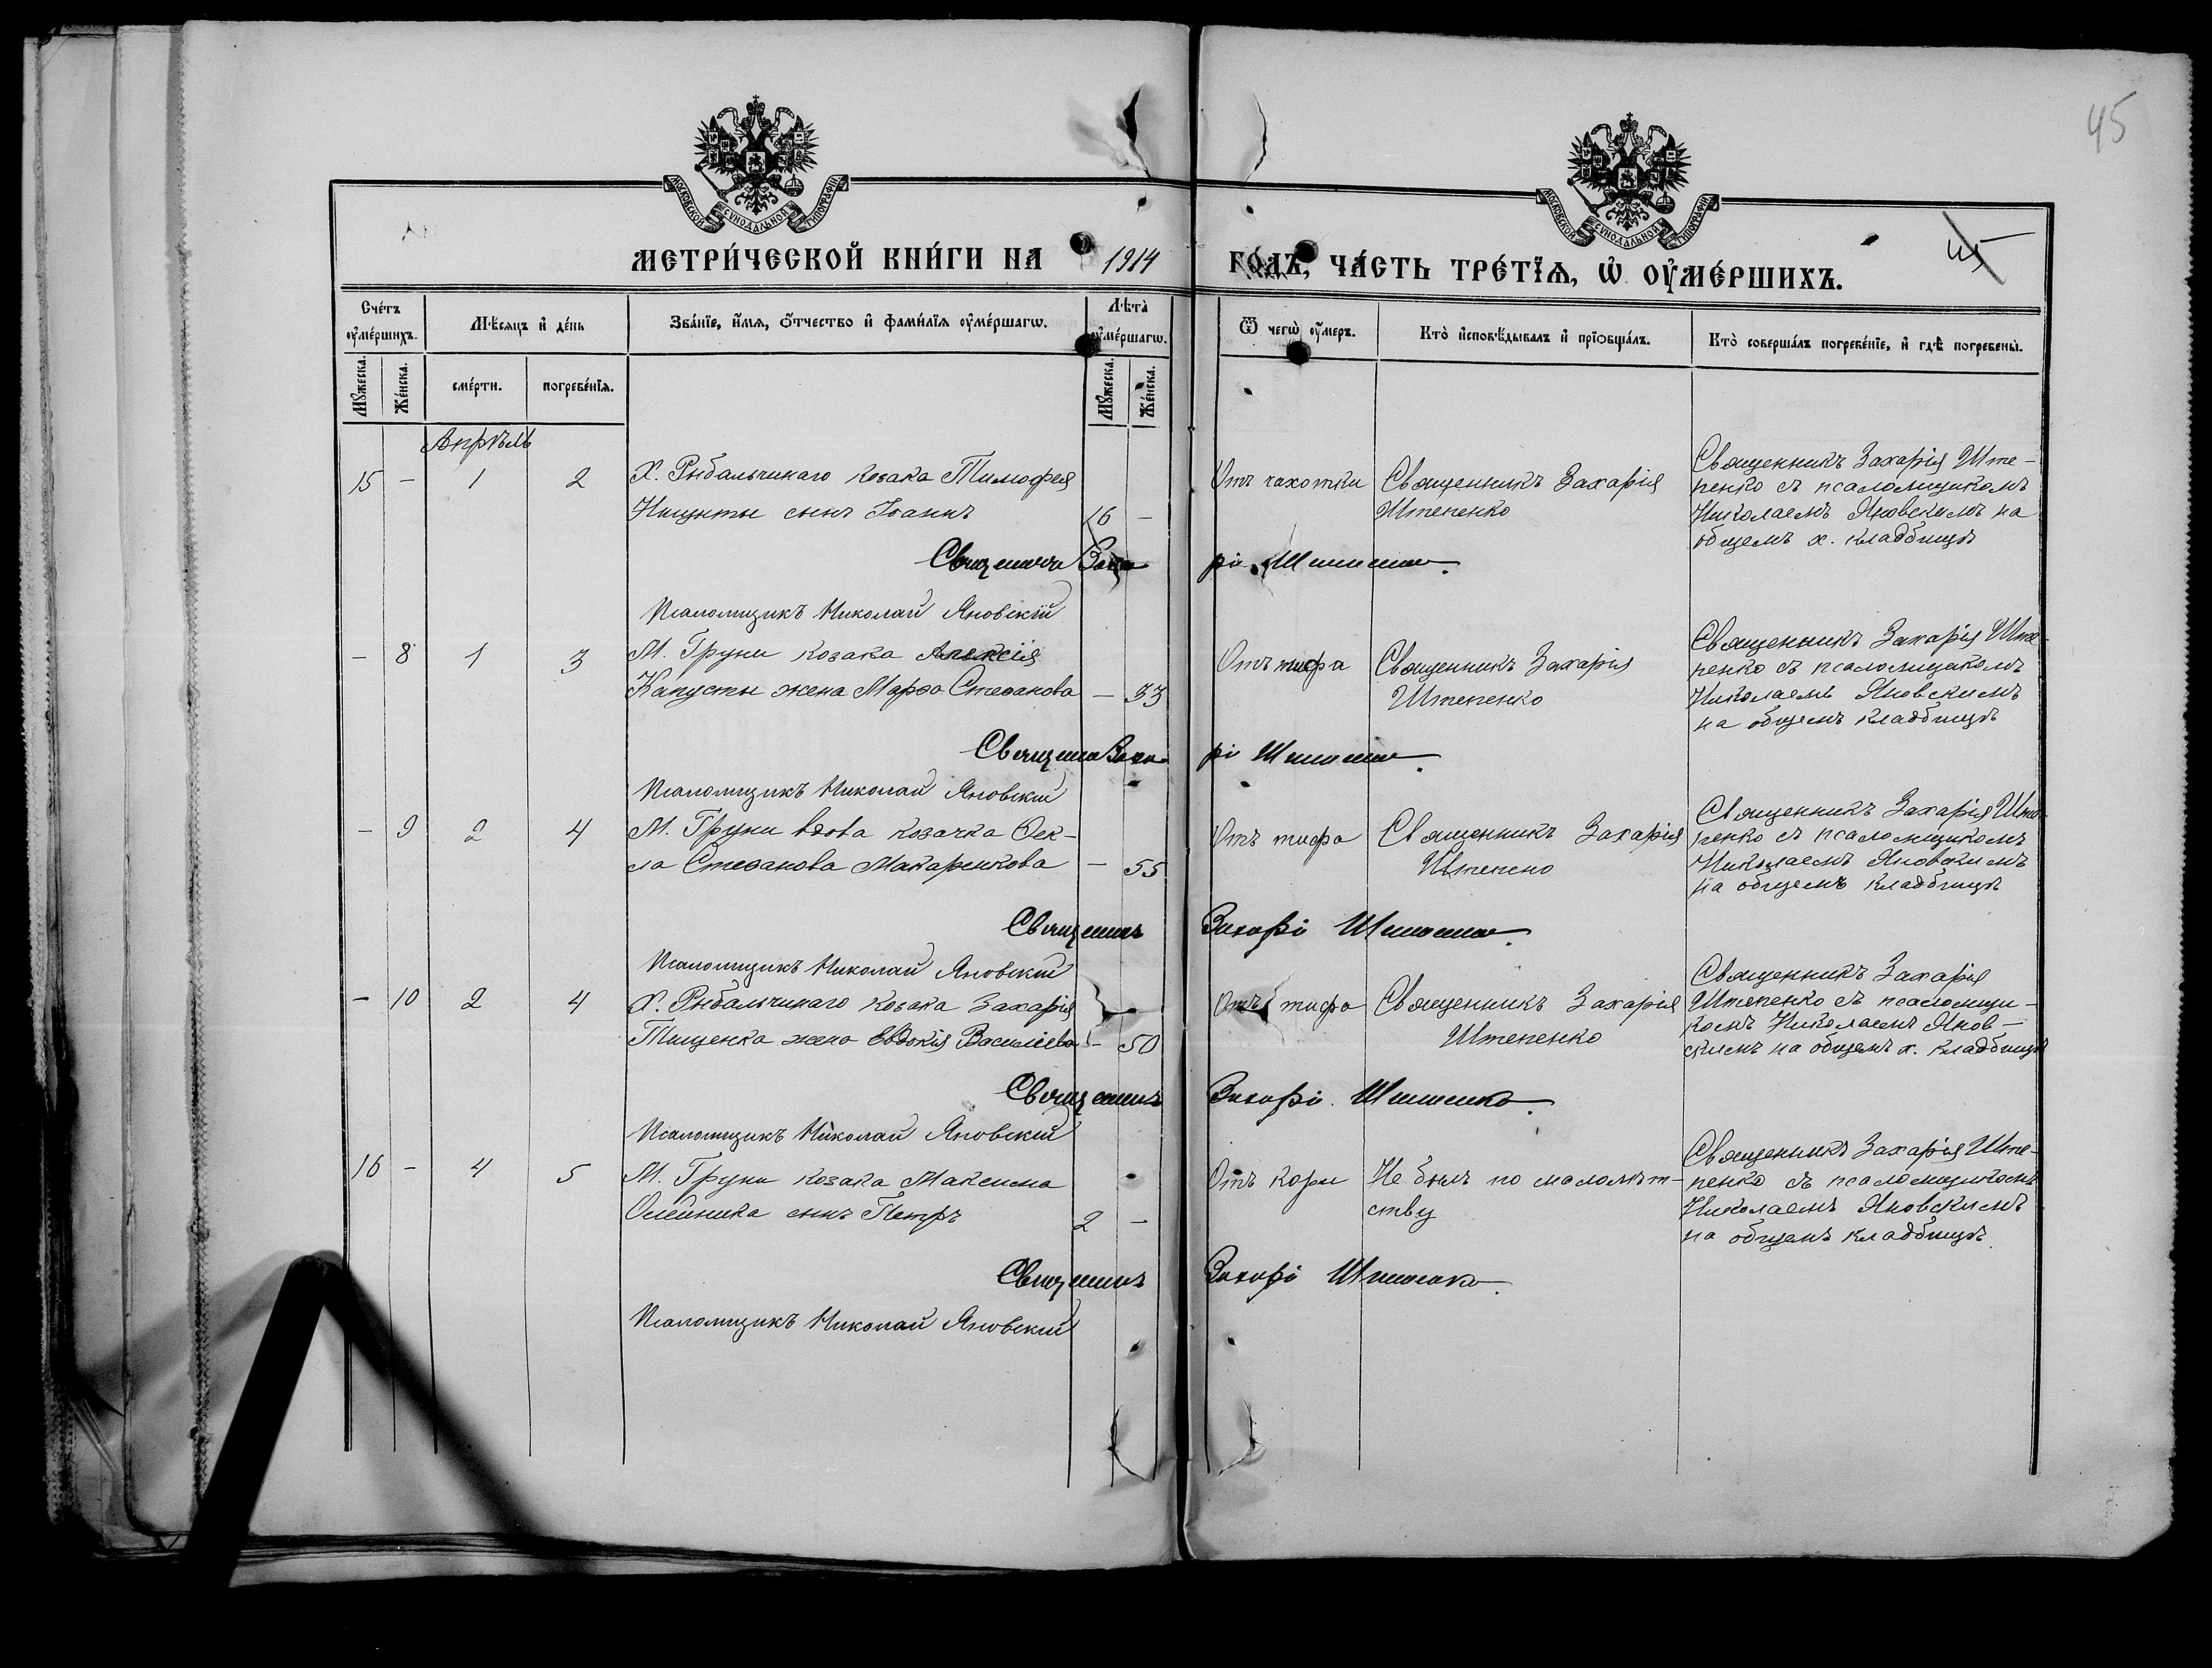 45
МОСКОВСКОЙ СѴНОДАЛЬНОЙ ТИПОГРАФІИ
МОСКОВСКОЙ СѴНОДАЛЬНОЙ ТИПОГРАФІИ
45
МЕТРИ́ЧЕСКОЙ КНИ́ГИ НА 1914 ГО́ДЪ, ЧА́СТЬ ТРЕ́ТЇѦ, Ѡ҆ ОУ҆МЕ́РШИХЪ.
Сче́тъ оу҆ме́ршихъ.
Мѣ́сяцъ и҆ де́нь
Зва́нїе, и҆́мѧ, ѻ҆́тчество и҆ фами́лїѧ оу҆ме́ршагѡ.
Лѣ́та оу҆ме́ршагѡ.
Ѿ чегѡ̀ оу҆́меръ.
Кто̀ и҆сповѣ́дывалъ и҆ прїѻбща́лъ.
Кто̀ соверша́лъ погребе́нїе, и҆ гдѣ̀ погребены̀.
Мꙋ́жеска.
Же́нска.
сме́рти.
погребе́нїѧ.
Мꙋ́жеска.
Же́нска.
Апрѣль
15 - 1 2
Х. Рыбальчинаго козака Тимофея
сынъ Іоаннъ 16 -
Отъ чахотки
Священникъ Захарія
Штепенко
Священникъ Захарія Ште-
пенко съ псаломщикомъ
Николаемъ Яновскимъ на
общемъ х. кладбищѣ
Священникъ Захарі Штепенко.
Псаломщикъ Николай Яновскій
- 8 1 3
М. Груни козака Алексія
Капусты жена Марѳа Стеѳанова - 33
Отъ тифа
Священникъ Захарія
Штепенко
Священникъ Захарія Ште-
пенко съ псаломщикомъ
Николаемъ Яновскимъ
на общемъ кладбищѣ
Священникъ Захарі Штепенко.
Псаломщикъ Николай Яновскій
- 9 2 4
М. Груни вдова козачка Ѳек-
ла Стеѳанова Макаренкова - 55
Отъ тифа
Священникъ Захарія
Штепено
Священникъ Захарія Ште-
пенко съ псаломщикомъ
Николаемъ Яновскимъ
на общемъ кладбищѣ
Священникъ Захарі Штепенко.
Псаломщикъ Николай Яновскій
- 10 2 4
Х. Рыбальчинаго козака Захарія
Тищенка жена Евдокія Василіева - 50
Отъ тифа
Священникъ Захарія
Штепенко
Священникъ Захарія
Штепенко съ псаломщи-
комъ Николаемъ Янов-
скимъ на общемъ х. кладбищѣ
Священникъ Захарі Штепенко.
Псаломщикъ Николай Яновскій
16 - 4 5
М. Груни козака Максима
Олейника сынъ Петръ 2 -
Отъ кори
Не былъ по малолѣт-
ству
Священникъ Захарія Ште-
пенко съ псаломщикомъ
Николаемъ Яновскимъ
на общемъ кладбищѣ
Священникъ Захарі Штепенко.
Псаломщикъ Николай Яновскій